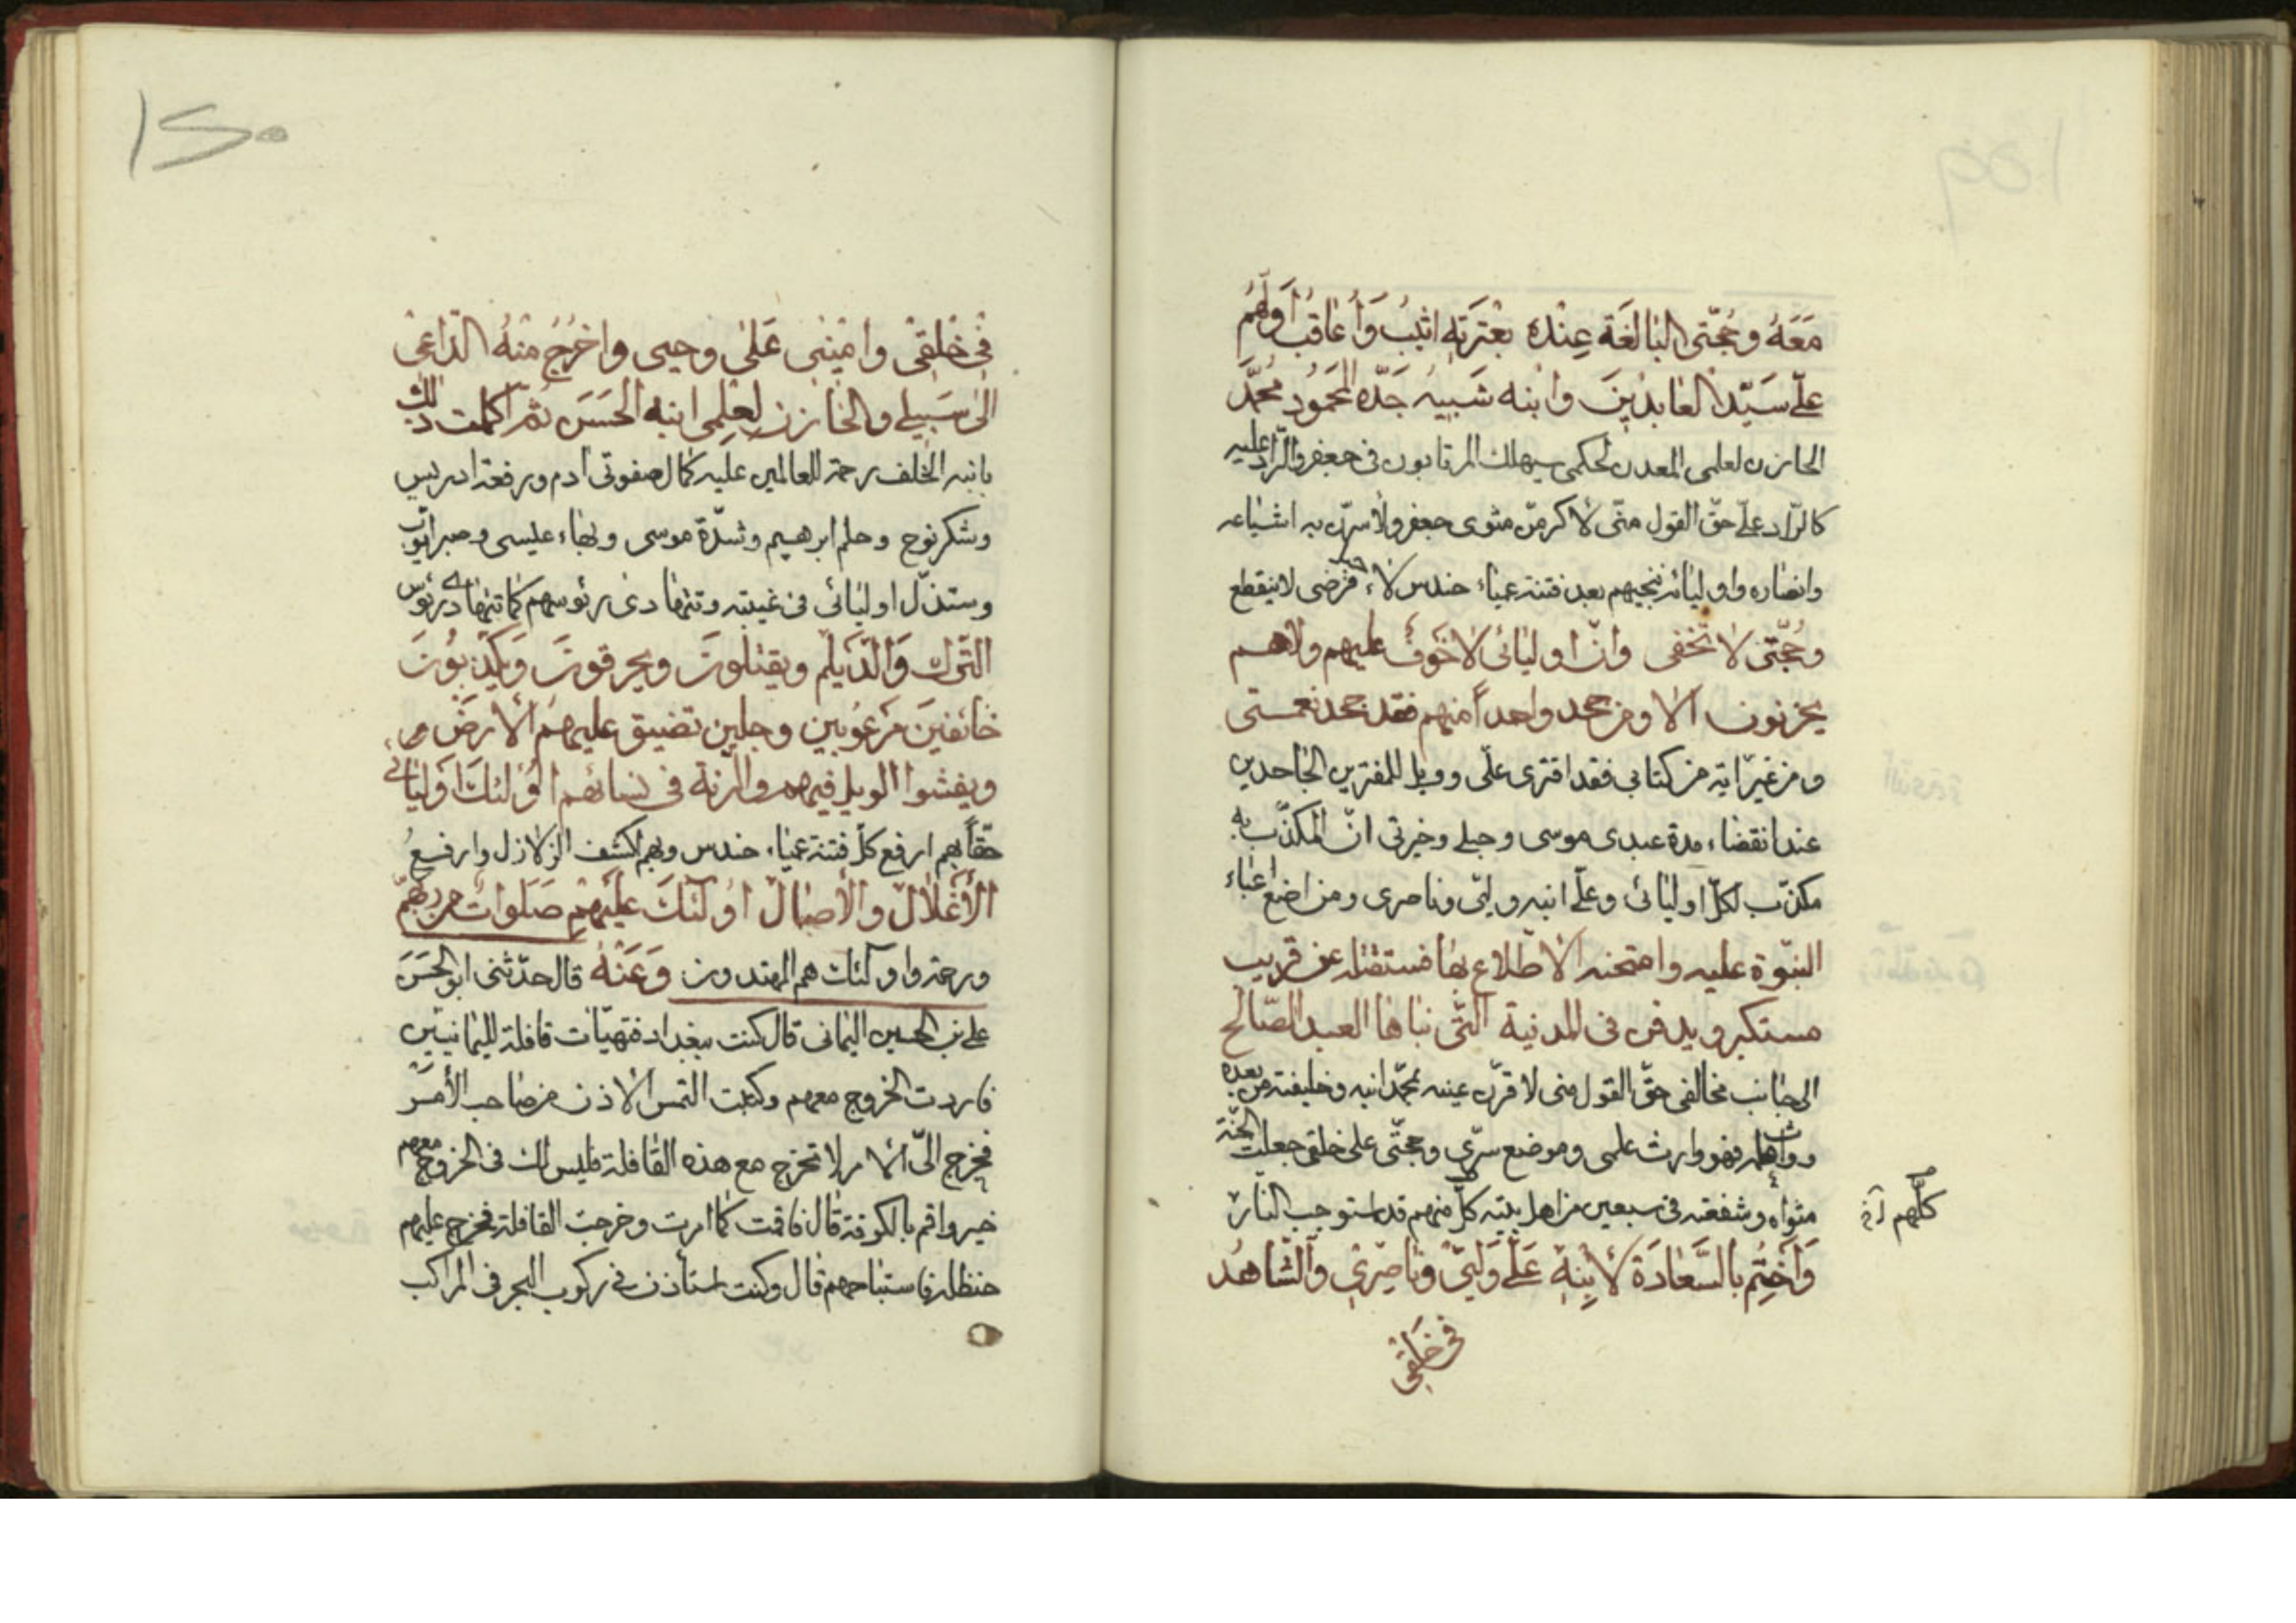 مَعَهُ وحُجّتى البالغَة عِنْدهُ بعتْرَتِهِ اثيبُ وَأعاقبُ أوَلهُم
علىّ سَيّد العابدينَ وابنه شبيهُ جَدّه المحَمُود محُمَّد
الخازن لعلمى المعدن لحكمى سيهلك المرتابون فى جعفر والرّاد عليه
كالرّاد علىّ حقّ القول منّى لأكرمنّ مثوى جعفر ولأسرّنّ به اشياعه
وانصاره واوليائه ننجيهم بعد فتنة عمياء حندس لاء فرضى لاينقطع
وحُجّتى لا تخفى وانّ اوليائى لا خوَفٌ عليهم ولاهم
يحزنون الا ومن جحد واحداً منهم فقد جحد نعمتى
ومن غيّر اية من كتابى فقد افترى علىّ وويل للمفترين الجاحدين
عند انقضاء مدة عبدى موسى وحبيبى وخيرتى انّ المكذّب به
مكذّب لكلّ اوليائى وعلىّ ابنه وليّى وناصرى ومن اضع اعباء
النبّوة عليه وامتحنه الاطّلاع بها فستقتله عن قريب
مستكبر ويدفن فى المدنية التّى بناها العبد الصّالح
الى جانب مخالفى حقّ القول منى لا قرّن عينيه بمحّمد ابنه وخليفته من بعده
ووارثه فهو وارث علمى وموضع سرّى وحجتّى على خلقى جعلت الجنّة
مثواه وشفعته فى سبعين من اهل بيته كلّ منهم قد استوجب النّار
كلّهم خ
وَاَخِتُم بالسَّعادَة لأبنِهِ عَلىّ وَلييّ وناصِرىْ والشّاهدُ
فى خَلقىِ
١٢٠
فى خلقىْ وامَينى عَلىٰ وحيى واخرُجُ منْهُ الدّاعى
الىٰ سَبيلى والخازن لعِلمى ابنه الحَسَن ثمّ اكملت ذلك
بابنه الخلف رحمة للعالمين عليه كمال صفوتى ادم ورفعة ادريس
وشكر نوح وحلم ابرهيم وشدّة موسى وبهاء عيسى وصبر ايّوب
وستذلّ اوليائى فى غيبته وتتهادى رؤسهم كما تتهادى رؤس
التّرك وَالدَّيلم ويقتلونَ ويحرقونَ وَيكذبُونَ
خائفينَ مَرعُوبين وجلين تضيق عليهمُ الأرض
ويفشوا الويل فيهم والرّنة فى نسائهم اوُلئكَ اَوليائى
حقّاً بهم ارفع كلّ فتنة عمياء حندس وبهم اكشف الزلازل وارفعُ
الأغلال والأصال اوُلَئكَ عليَهِم صَلَواتٌ من ربّهِم
ورحمة واولئك هم المهتدون وَعَنْهُ قال حدّثنى ابو الحَسَنَ
على بن الحسين اليمانى قال كنت ببغداد فتهيّات قافلة لليمانييّن
فاردت الخروج معهم وكتبت التمس الاذن من صاحب الأمَر
فخرج الىّ الامر لا تخرج مع هذه القافلة فليس لك فى الخروج معهم
خير واقم بالكوفة قال فاقمت كما امرت وخرجت القافلة فخرج عليهم
حنظلة فاستباحهم قال وكنت استأذن فى ركوب البحر فى المراكب